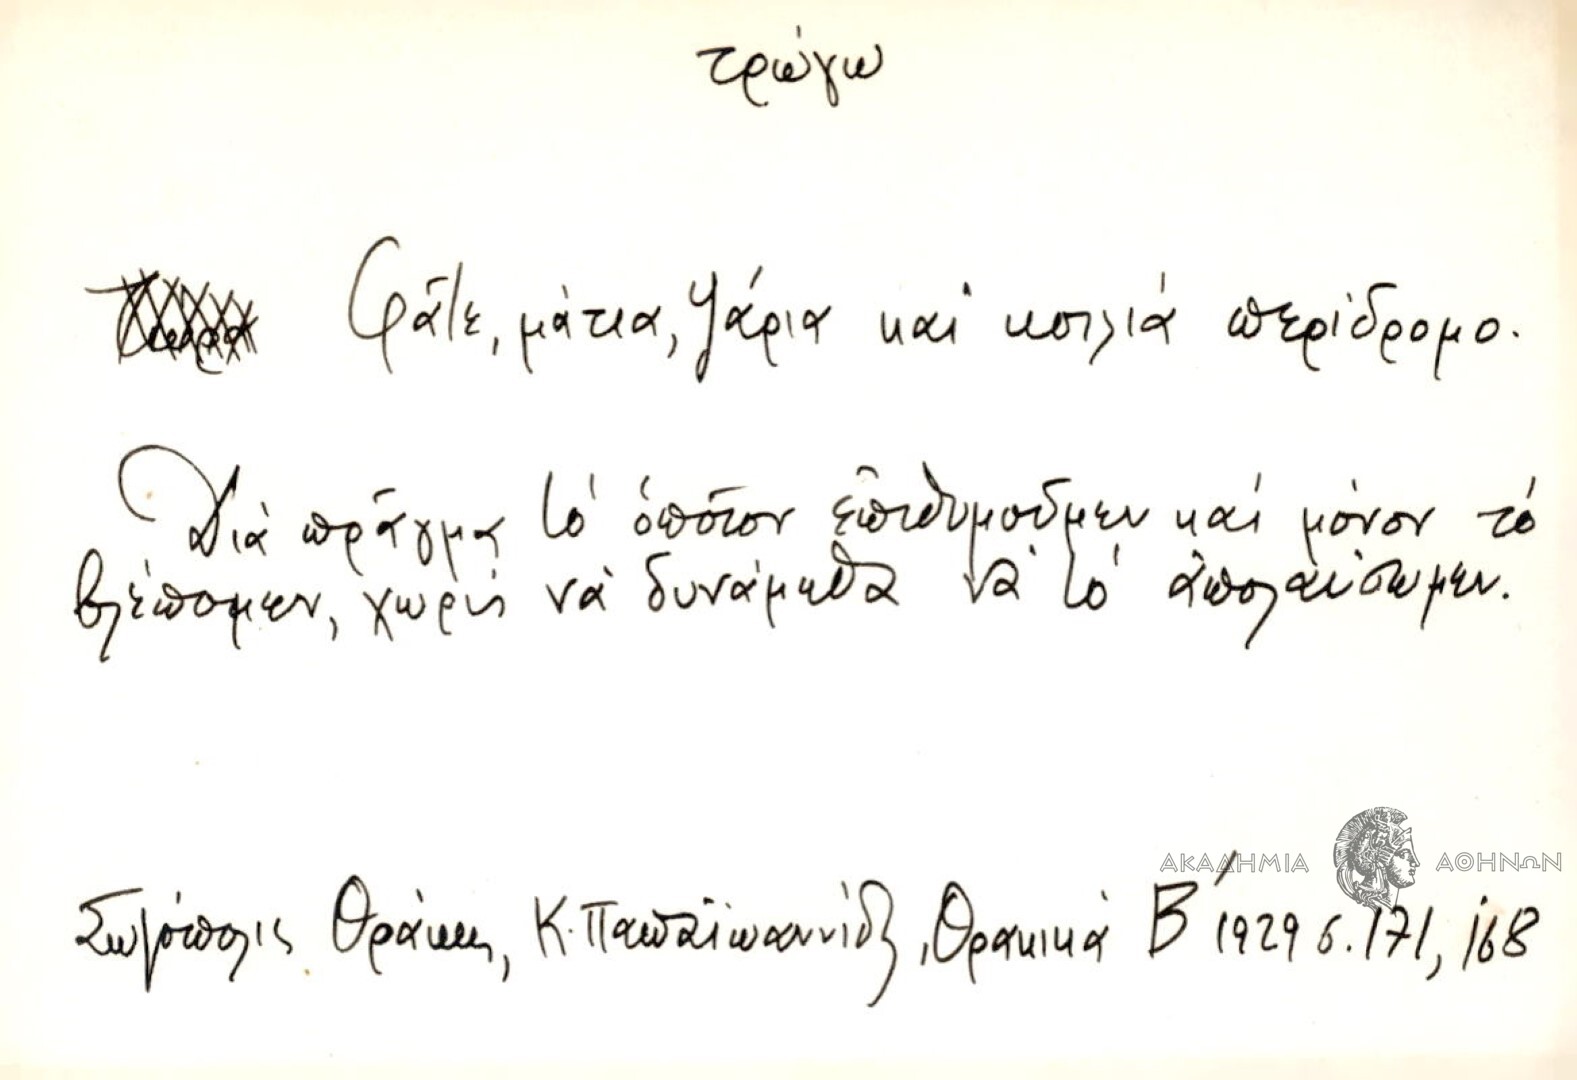 τρώγω
Φᾶτε, μάτια, ψάρια καὶ κοιλιά περίδρομο.
Διὰ πρᾶγμα τό ὁποῖον ἐπιθυμοῦμεν καί μόνον τό
βλέπομεν, χωρίς νὰ δυνάμεθα νὰ τό ἀπολαύσωμεν.
ΑΚΑΔΗΜΙΑ ΑΘΗΝΩΝ
Σωζόπολις Θράκης, Κ. Παπαϊωαννίδη, Θρακικά Β΄ 1929 σ. 171, 168